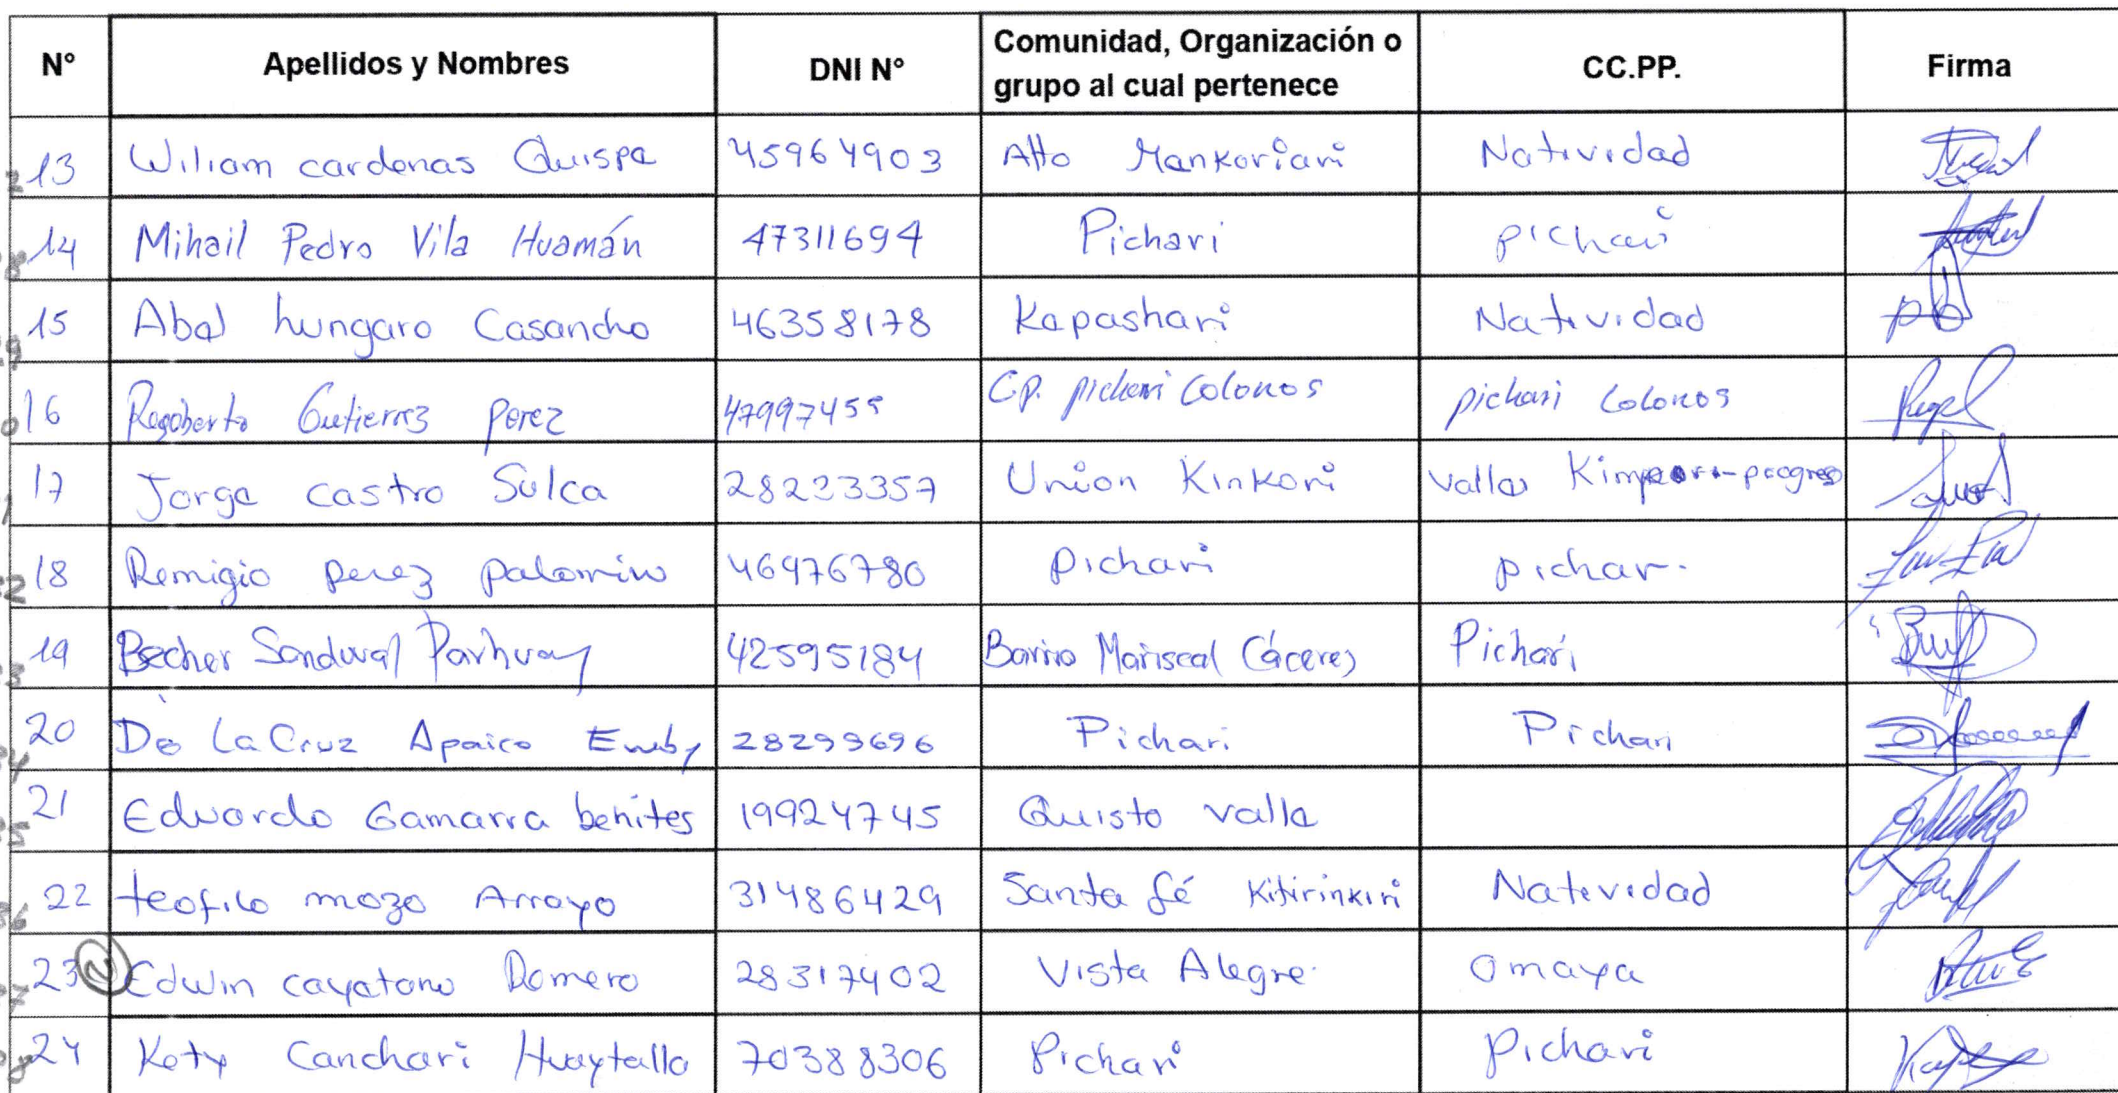 N° Apellidos y Nombres DNI N° Comunidad, Organización o grupo al cual pertenece CC.PP. Firma
13 Wiliam cardenas Quispe 45964903 Alto Mankoriari Natividad
14 Mihail Pedro Vila Huamán 47311694 Pichari pichari
15 Abel hungaro Casancho 46358178 Kapashari Natividad
16 Rogoberto Gutierrez perez 47997455 C.p. pichari Colonos pichari Colonos
17 Jorge castro Sulca 28223357 Union Kinkori valle Kimpiri-progreso
18 Remigio perez palomino 46976780 pichari pichari
19 Becher Sandoval Parhuay 42595184 Barrio Mariscal Cáceres Pichari
20 De La Cruz Apaico 28299696 Pichari Pichari
21 Eduardo Gamarra benites 19924745 Quisto valle
22 teofilo mozo Arroyo 31486429 Santa fé Kitirinkiri Natevedad
23 Edwin cayetano Romero 28317402 Vista Alegre Omaya
24 Kety Canchari Huaytalla 70388306 Pichari Pichari